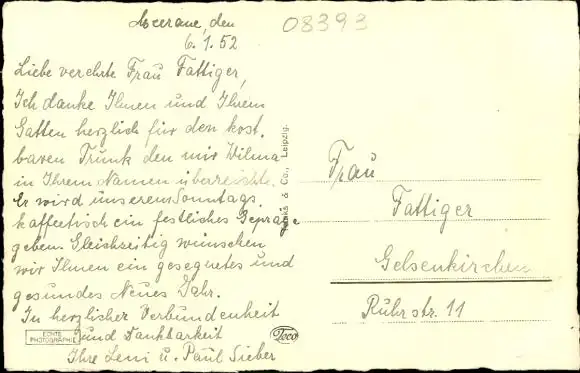 Meerane, den
6.1.52
08393
Liebe verehrte Frau Fattiger,
Ich danke Ihnen und Ihrem
Gatten herzlich für den kost.
baren Trunk den mir Wilma
in Ihrem Namen überreichte.
Er wird unserem Sonntags.
kaffeetisch ein festliches Gepräge
geben. Gleichzeitig wünschen
wir Ihnen ein gesegnetes und
gesundes Neues Jahr.
In herzlicher Verbundenheit
und Dankbarkeit
Ihre Leni u. Paul Sieber
ECHTE
PHOTOGRAPHIE
& Co., Leipzig.
Toco
Frau
Fattiger
Gelsenkirchen
Ruhrstr. 11